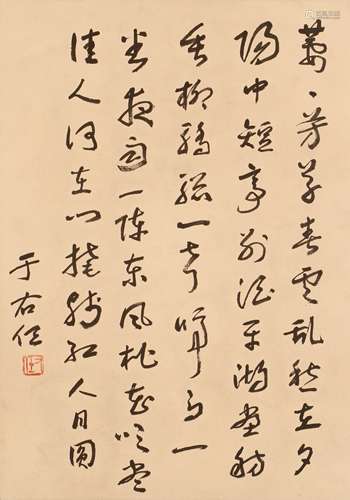 萋〻芳草春雲亂愁在夕
陽中短亭別酒平湖畫舫
垂柳驕驄一聲啼鳥一
番夜雨一陣東風桃花吹盡
佳人何在門掩殘紅人月圓
于右任